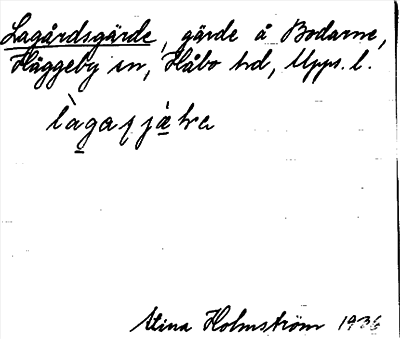 Lagårdsgärde, gärde å Bodarne,
Häggeby sn, Håbo hd, Upps. l.
Stina Holmström 1936